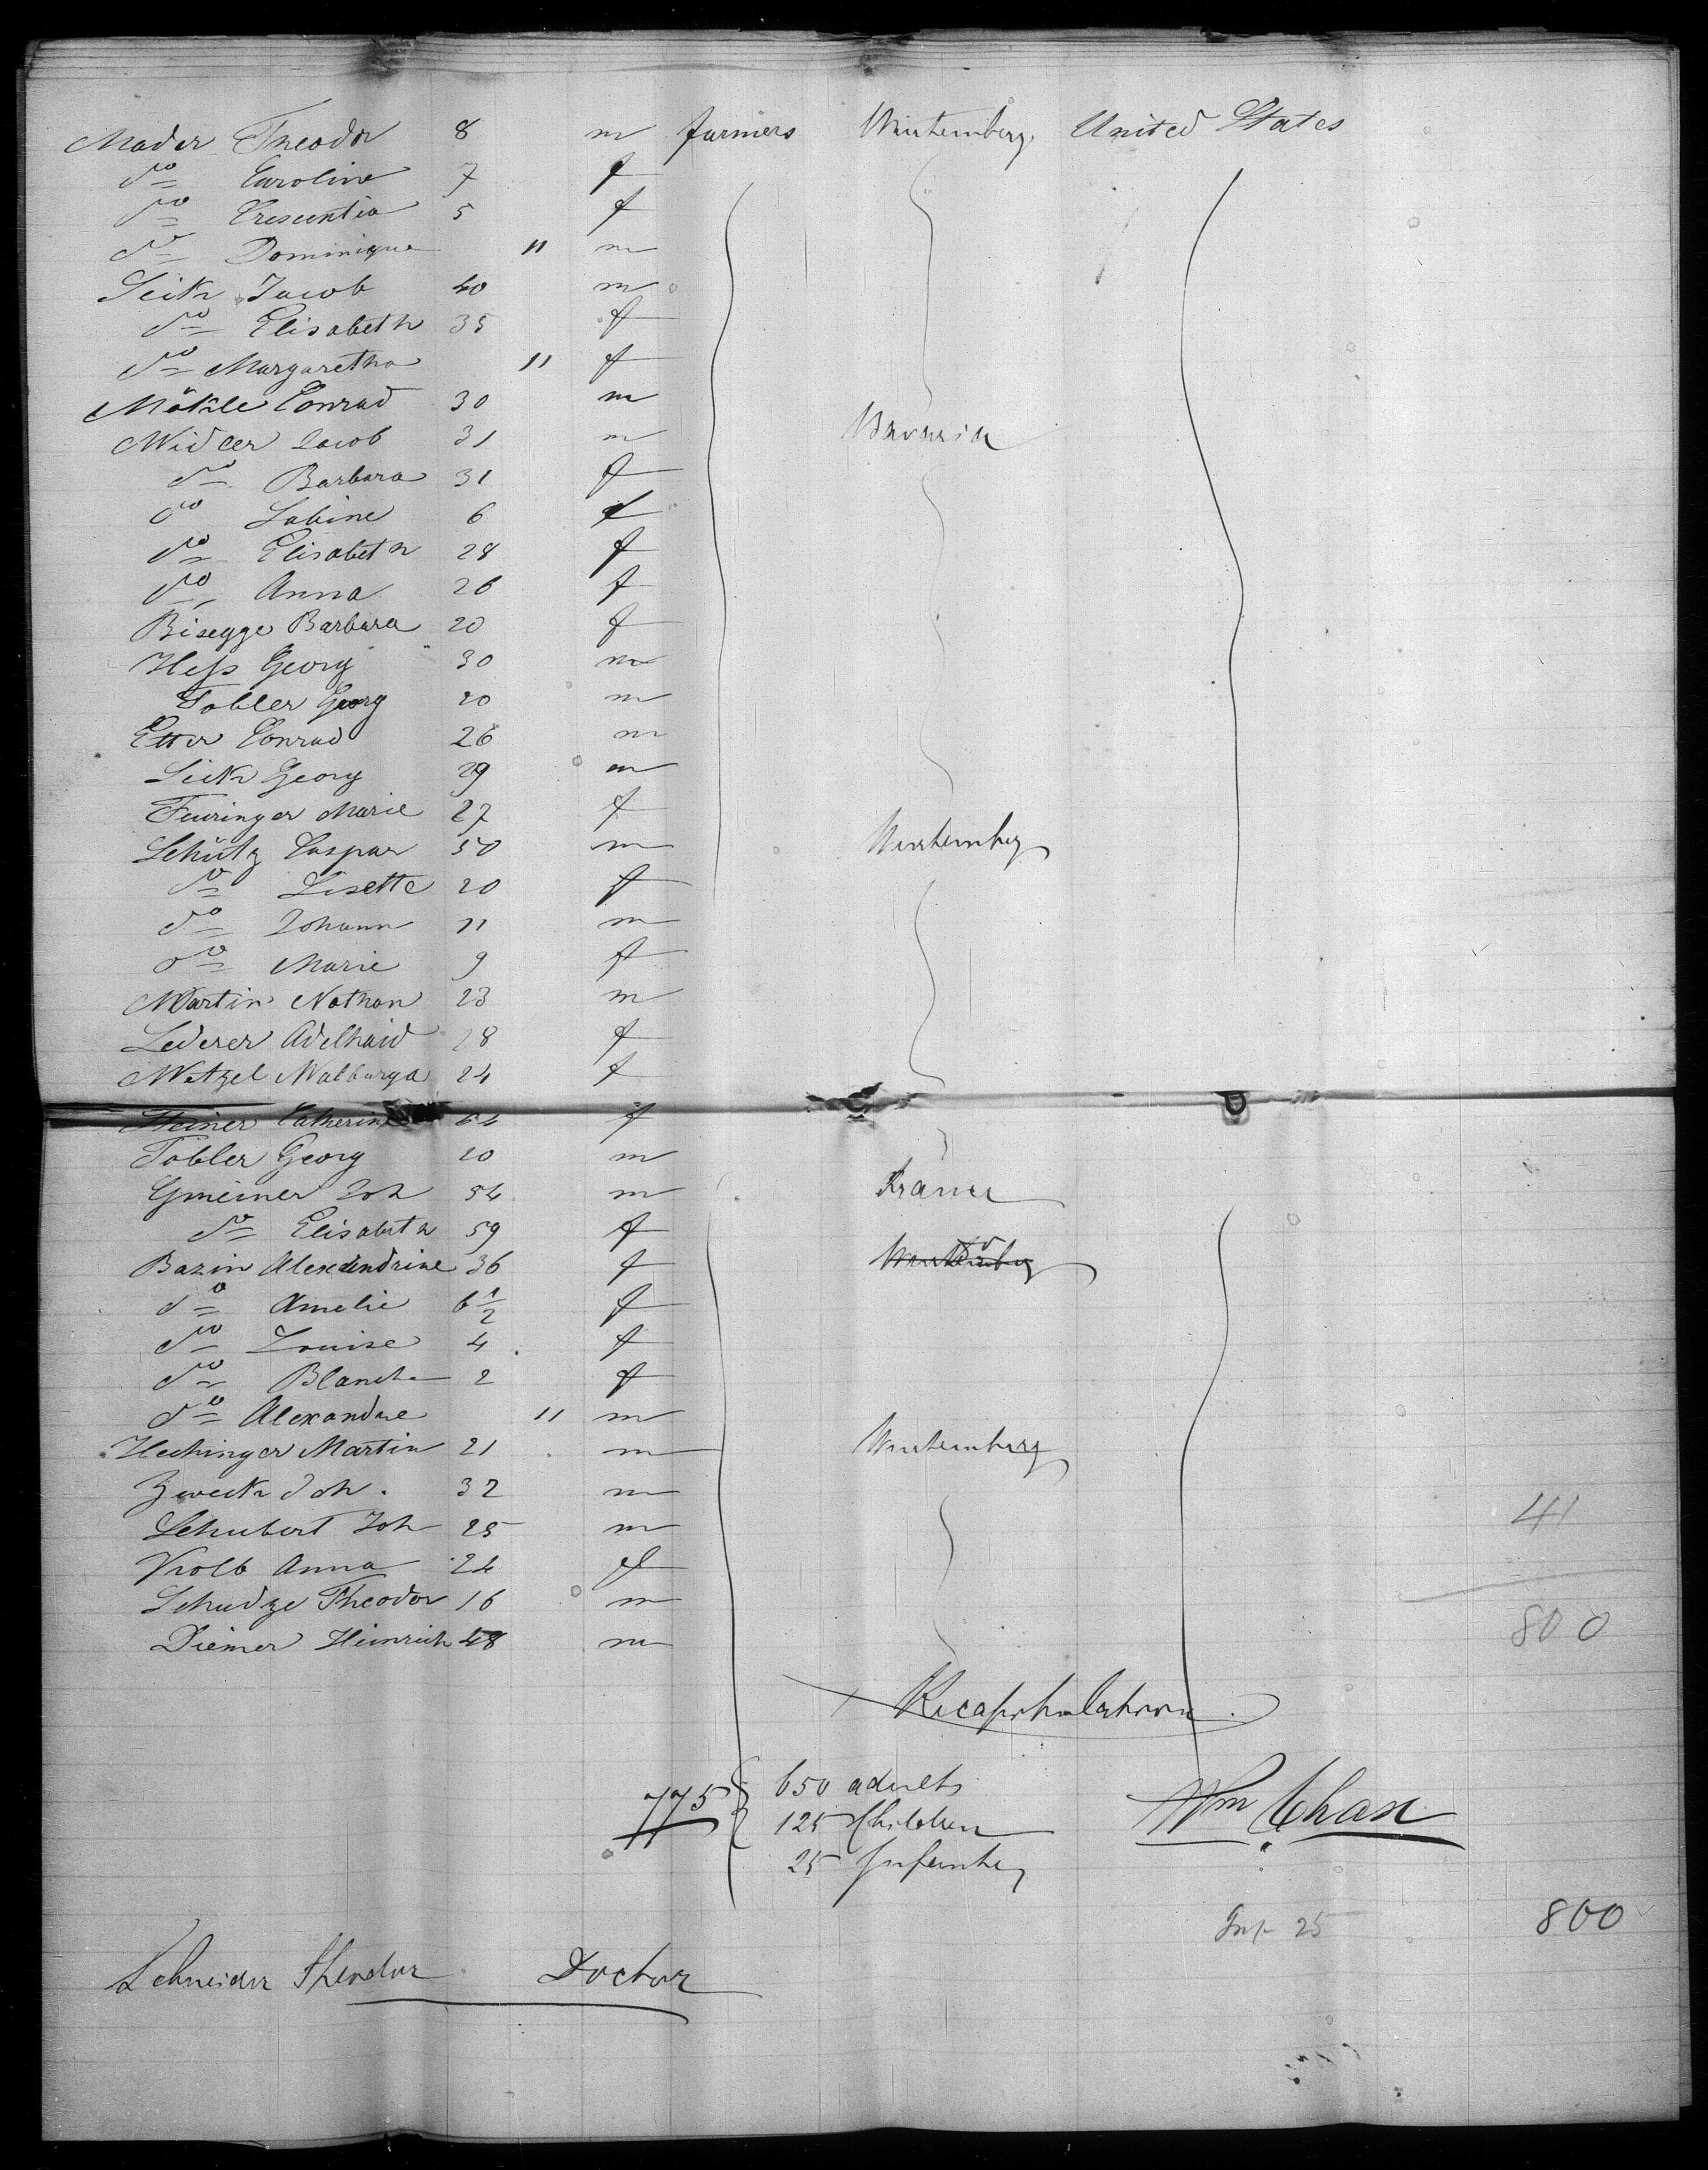 Mader Theodor 8 m farmers Wurtemberg United States
do Caroline 7 f
do Crescentia 5 f
do Dominique " m
Seik Jacob 40 m
do Elisabeth 35 f
do Margaretha " f
Mökle Conrad 30 m
Widler Jacob 31 m Bavaria
do Barbara 31 f
do Sabine 6 f
do Elisabeth 28 f
do Anna 26 f
Bisegge Barbara 20 f
Hess Georg 30 m
Tobler Georg 20 m
Etter Conrad 26 m
Seik Georg 29 m
Feuringer Marie 27 f
Schütz Caspar 50 m Wurtemberg
do Lisette 20 f
do Johann 11 m
do Marie 9 f
Martin Nathan 23 m
Lederer Adelhaid 28 f
Wetzel Walburga 24 f
Steiner Catherine 64 f
Tobler Georg 20 m
Gmeiner Joh 54 m France
do Elisabeth 59 f
Bazin Alexandrine 36 f Wurtemberg do
do Amelie 6 1/2 f
do Louise 4 f
do Blanche 2 f
do Alexandre " m
Hechinger Martin 21 m Wurtemberg
Zweck Joh. 32 m
Schubert Joh 25 m 41
Kolb Anna 24 f
Schudze Theodor 16 m 800
Diemer Heinrich 48 m
Recapitulation
775 { 650 adults
125 Children Wm Chase
25 Infants
Inf 25 800
Schneider Theodor Doctor